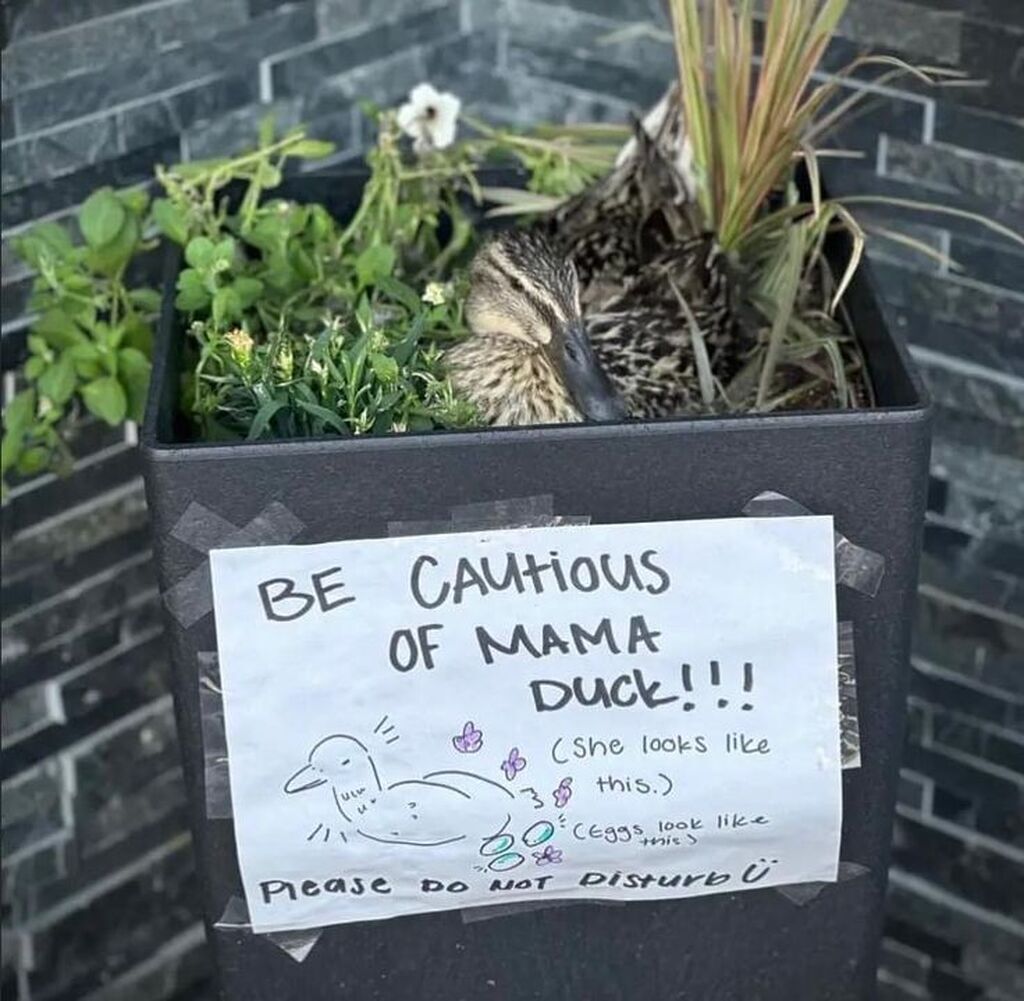 BE CAUTIOUS
OF MAMA
DUCK!!!
(She looks like
this.)
(Eggs look like
this)
Please DO NOT Disturb Ü